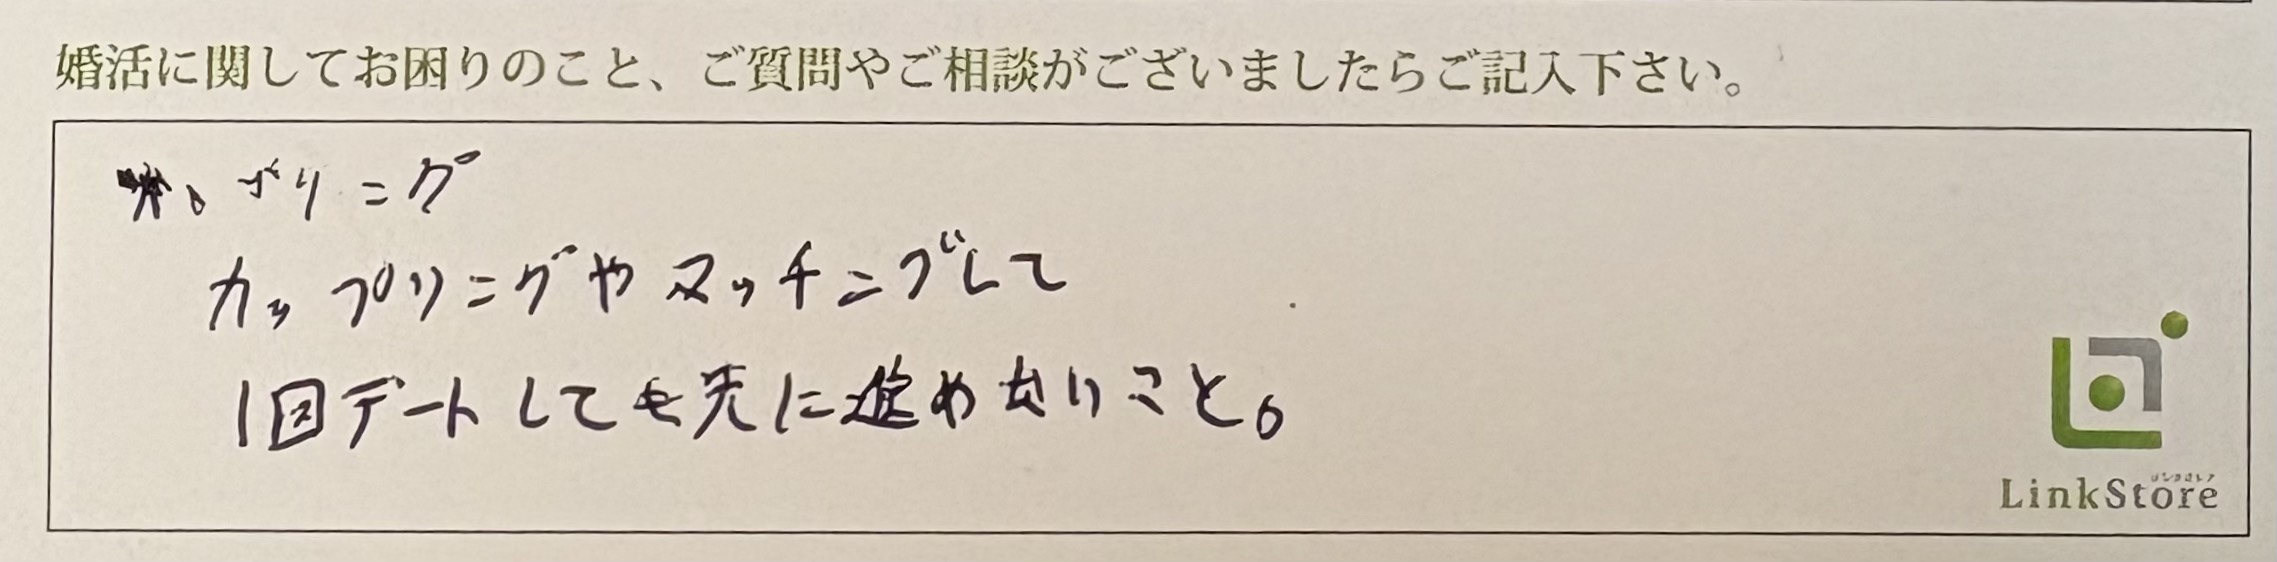 婚活に関してお困りのこと、ご質問やご相談がございましたらご記入下さい。
カップリングやマッチングして
1回デートしても先に進めないこと。
LinkStore